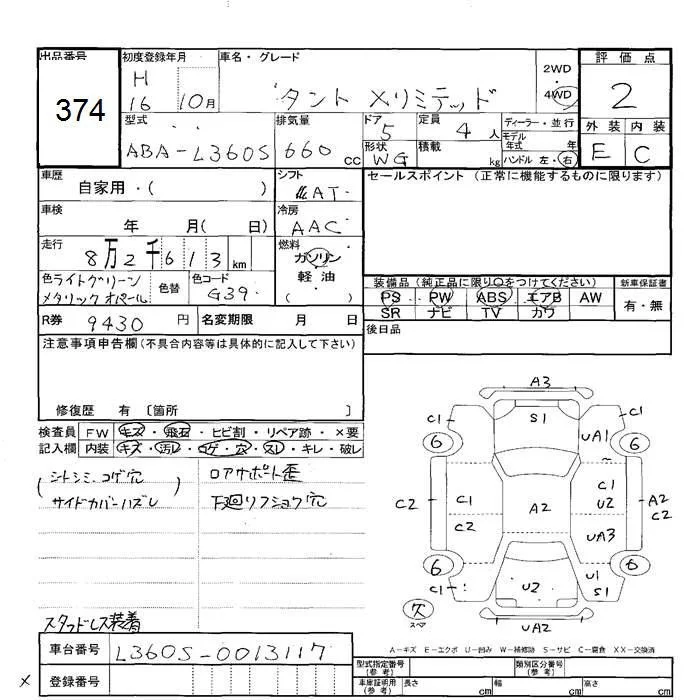 出品番号 初度登録年月 車名・グレード 評価点
374 H 16 10月 タント Xリミテッド 2WD 4WD 2
型式 排気量 ドア 定員 ディーラー・並行 外装 内装
ABA-L360S 660cc 5 4人 モデル年式 年 E C
形状 WG 積載 kg ハンドル 左・右
車歴 シフト セールスポイント (正常に機能するものに限ります)
自家用・( ) AT
車検 冷房
年 月( 日) AAC
走行 燃料
8万2千613km ガソリン
軽油
( )
色 ライトグリーンメタリックオパール 色替 色コード G39
装備品 (純正品に限り○をつけてください) 新車保証書
PS PW ABS エアB AW 有・無
SR ナビ TV カワ
R券 9430円 名変期限 月 日 後日品
注意事項申告欄(不具合内容等は具体的に記入して下さい)
修復歴 有 〔箇所 〕
検査員 FW キズ・飛石・ヒビ割・リペア跡・×要
記入欄 内装 キズ・汚レ・コゲ・穴・スレ・キレ・破レ
(シトシミ、コゲ穴 ロアサポート歪
サイドカバーハズレ) 下廻リフショウ穴
A3
C1 S1 C1
6 UA1 6
C2 C1 C1 A2
C2 A2 U2 C2
UA3
6 U1 6
C1 U2 S1
欠 スペア UA2
スタッドレス装着
A-キズ E-エクボ U-凹み W-補修跡 S-サビ C-腐食 XX-交換済
車台番号 L360S-0013117
型式指定番号(参考) 類別区分番号(参考)
× 登録番号
車庫証明用(参考) 長さ cm 幅 cm 高さ cm